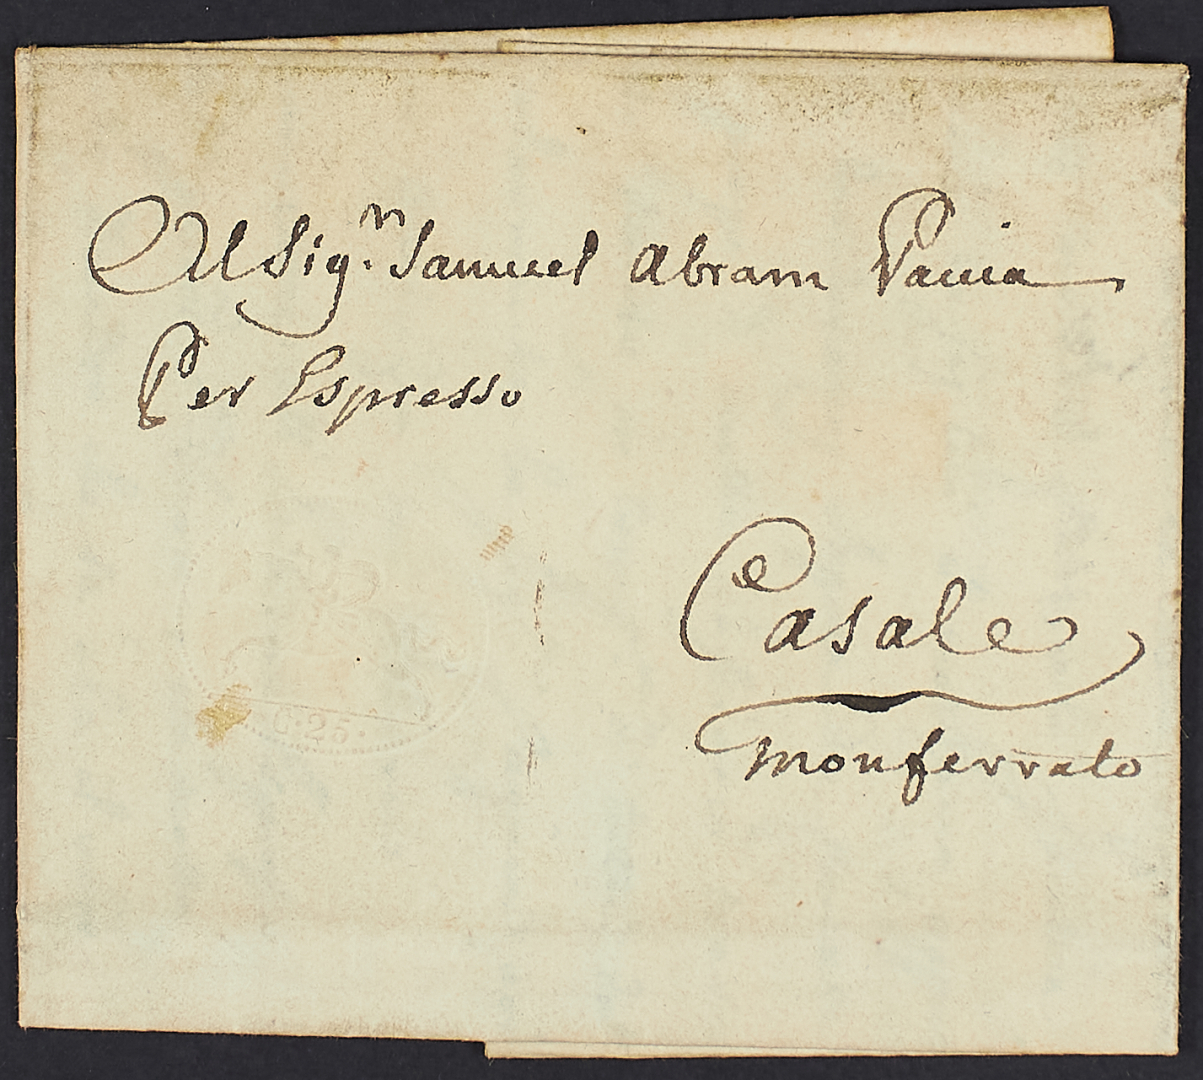 Al Sig.n Samuel Abram Pavia
Per Espresso
Casale
Monferrato
C. 25.